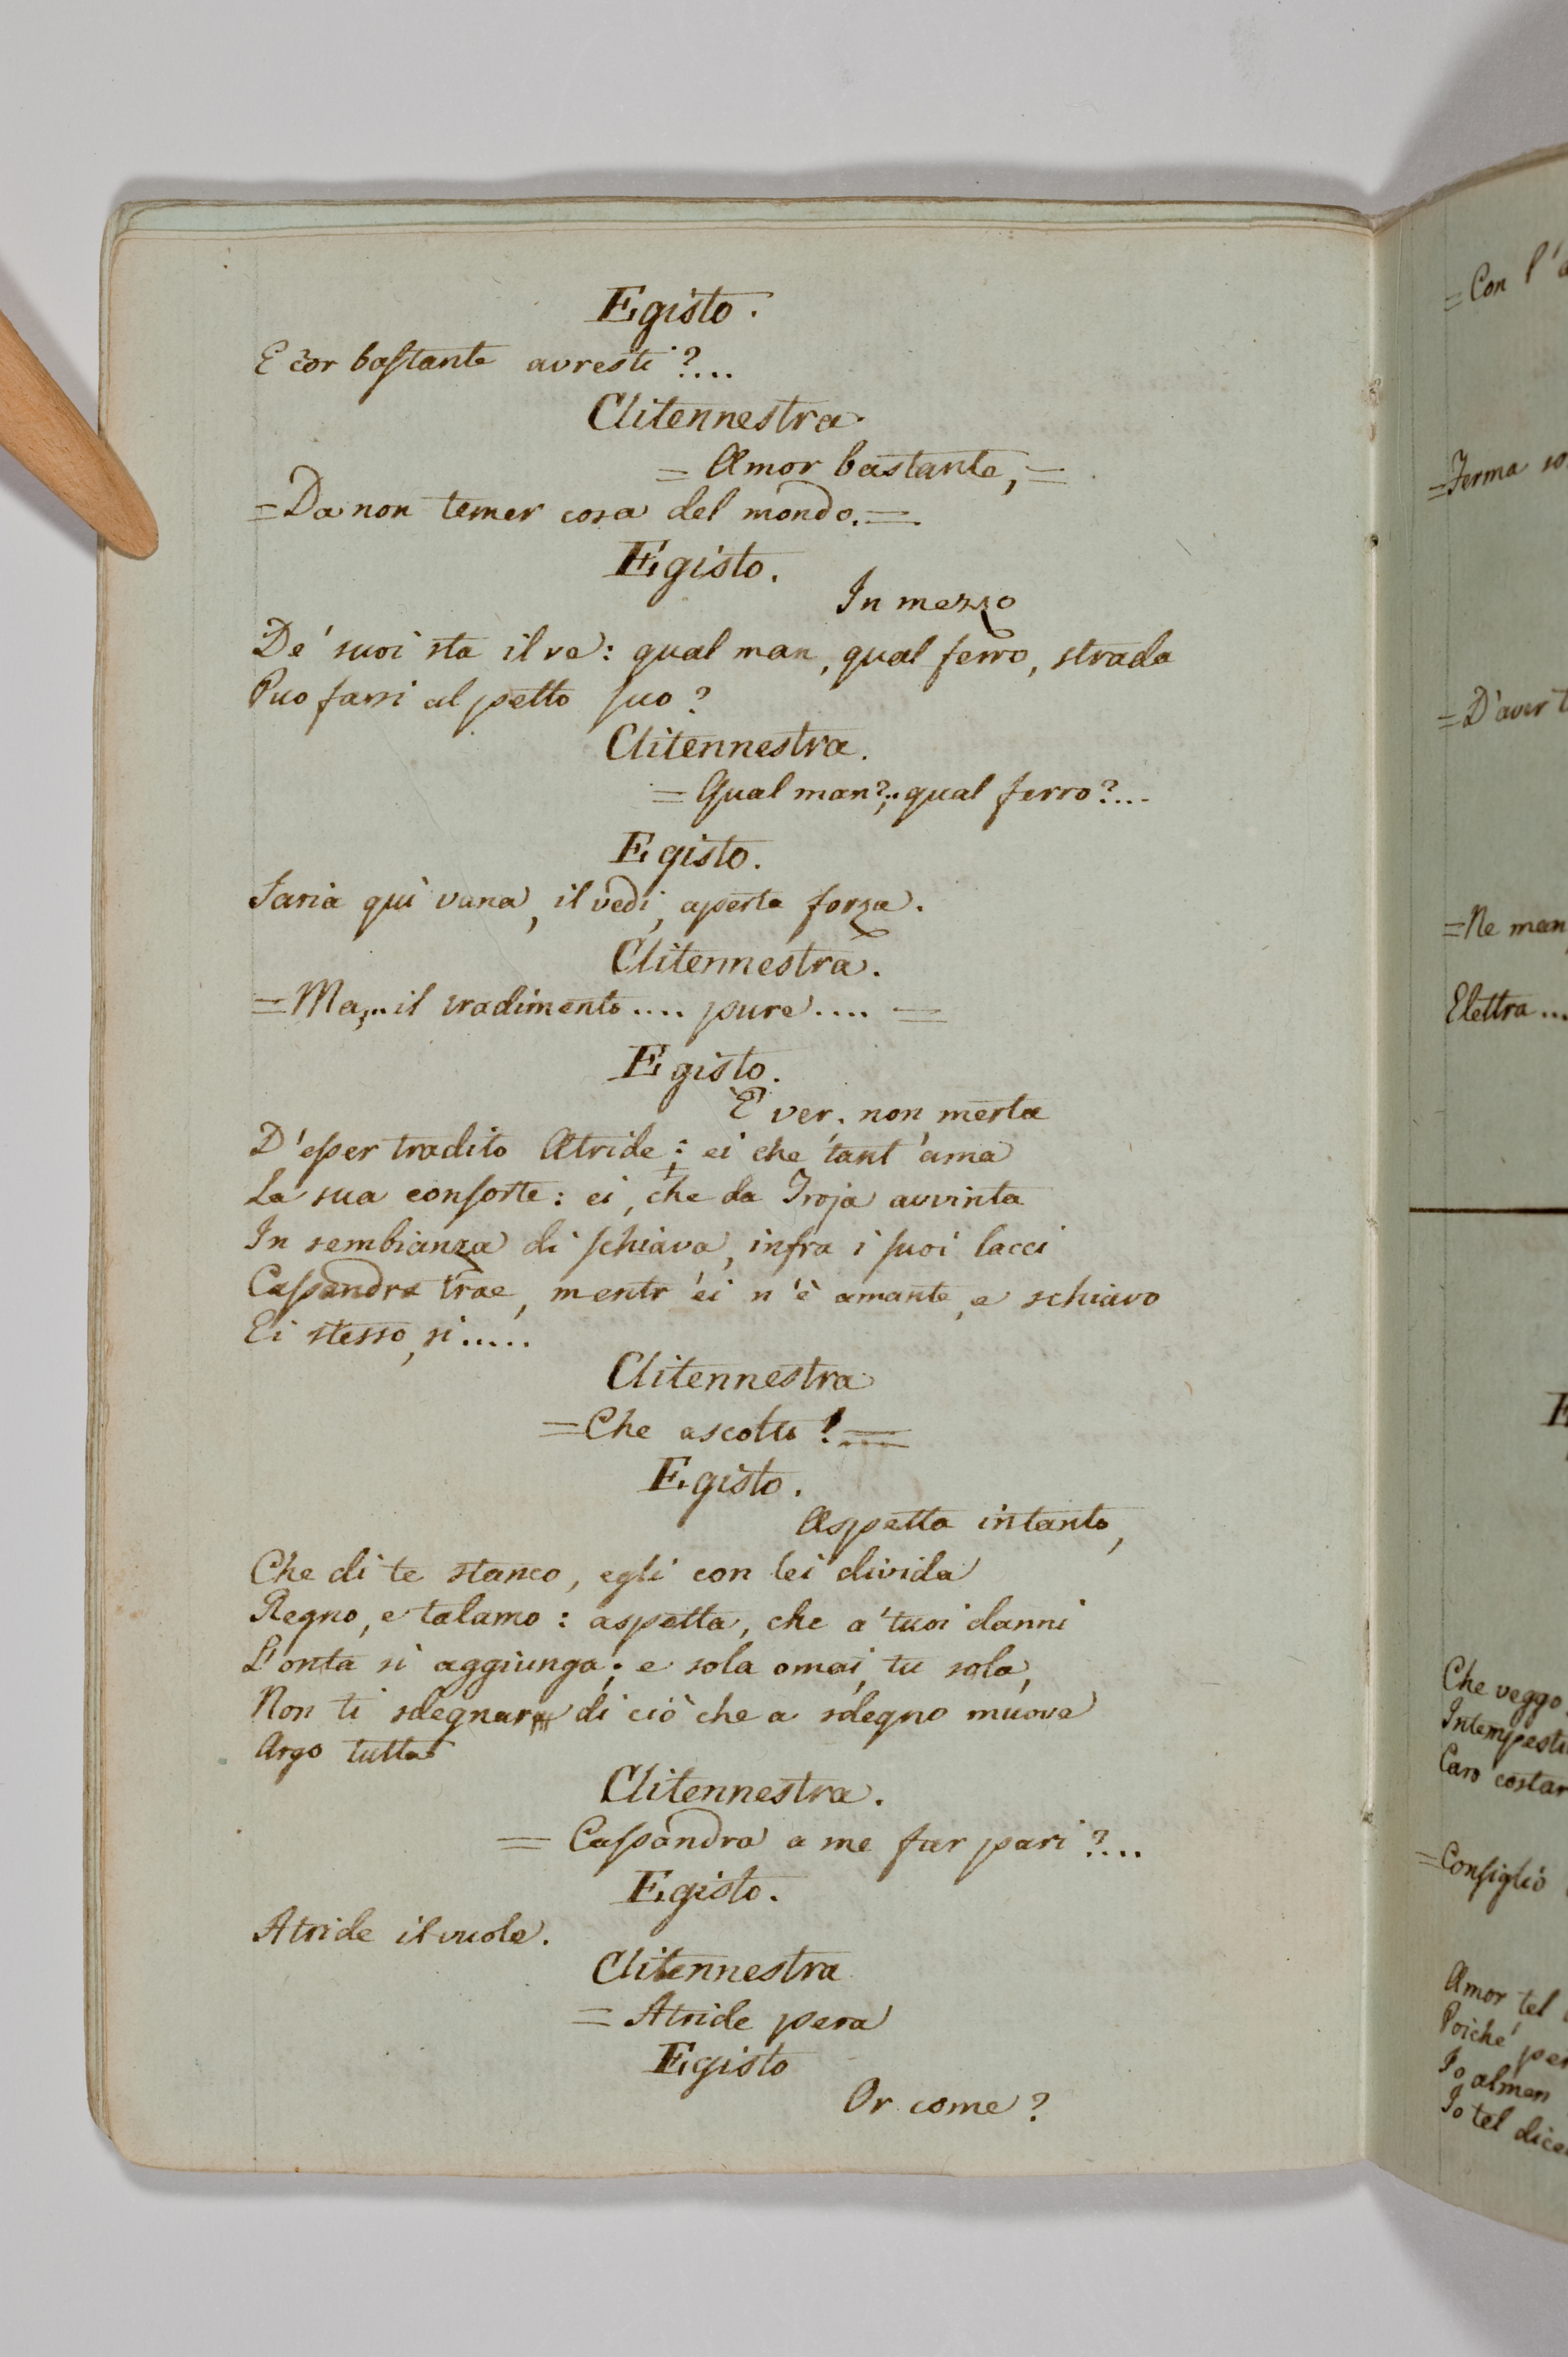 Egisto.
E cor bastante avresti?...
Clitennestra.
= Amor bastante, =
= Da non temer cosa del mondo. =
Egisto.
In mezzo
De' suoi sta il re: qual man, qual ferro, strada
Puo farsi al petto suo?
Clitennestra.
= Qual man?.. qual ferro?...
Egisto.
Saria quì vana, il vedi, aperta forza.
Clitennestra.
= Ma,.. il tradimento.... pure.... =
Egisto.
E' ver, non merta
D'esser tradito Atride: ei che tant'ama
La sua consorte: ei, che da Troja avvinta
In sembianza di schiava, infra i suoi lacci
Cassandra trae, mentr'ei n'è amante, e schiavo
Ei stesso, si.....
Clitennestra
= Che ascolto! =
Egisto.
Aspetta intanto,
Che di te stanco, egli con lei divida
Regno, e talamo: aspetta, che a' tuoi danni
L'onta si aggiunga; e sola omai, tu sola,
Non ti sdegnar di ciò che a sdegno muove
Argo tutta
Clitennestra.
= Cassandra a me far pari?...
Egisto.
Atride il vuole.
Clitennestra
= Atride pera
Egisto
Or come?
= Con l'
= Ferma
= D'aver
= Ne man
Elettra...
Che veggo
Caro costar
= Consiglio
Amor tel
Poichè
Io almen
Io tel